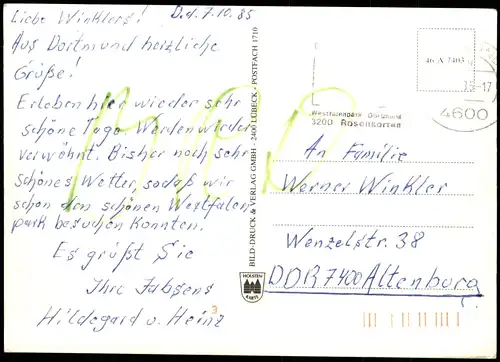 Liebe Winklers! D.d. 7.10.85
Aus Dortmund herzliche
Grüße!
Erleben hier wieder sehr
schöne Tage. Werden wieder
verwöhnt. Bisher noch sehr
schönes Wetter, sodaß wir
schon den schönen Westfalen
park besuchen konnten.
Es grüßt Sie
Ihre Jabsens
Hildegard u. Heinz
3
BILD-DRUCK & VERLAG GMBH · 2400 LÜBECK · POSTFACH 1710
HOLSTEN
KARTE
46 A 7403
-17
4600
Westfalenpark Dortmund
3200 Rosensorten
An Familie
Werner Winkler
Wenzelstr. 38
DDR 7400 Altenburg